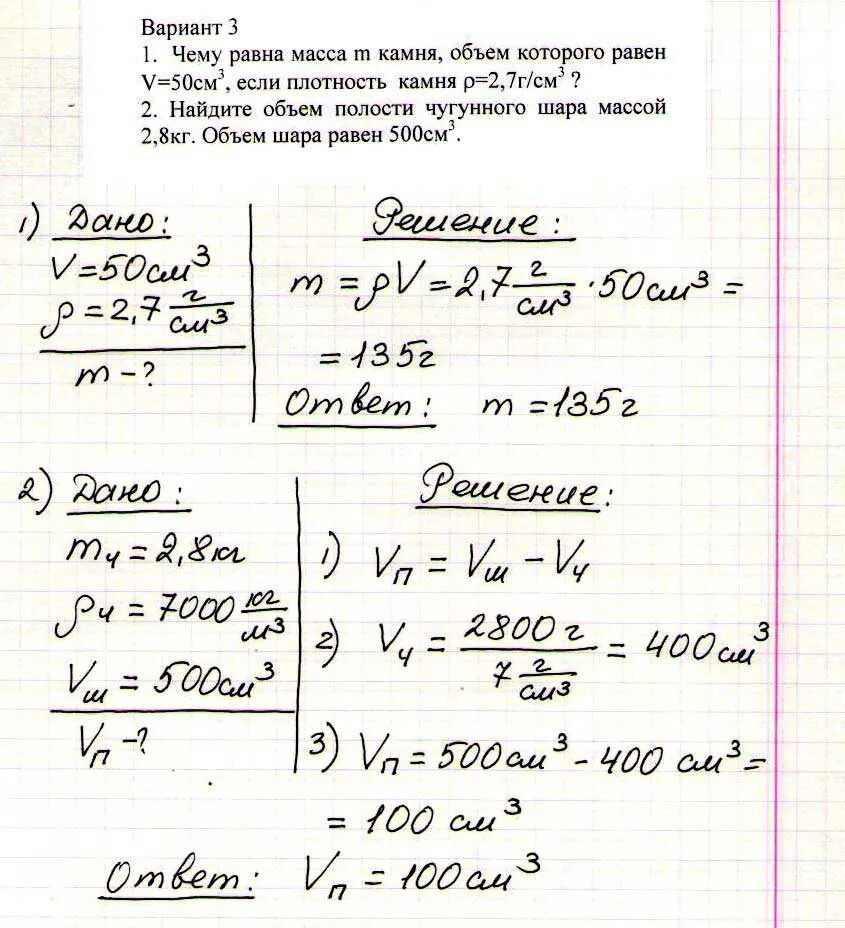 Вариант 3
1. Чему равна масса m камня, объем которого равен
V=50см³, если плотность камня ρ=2,7г/см³ ?
2. Найдите объем полости чугунного шара массой
2,8кг. Объем шара равен 500см³.
1) Дано:
V=50см³
ρ=2,7 г/см³
m-?
Решение:
m = ρV = 2,7 г/см³ · 50см³ =
= 135г
Ответ: m = 135г
2) Дано:
mч = 2,8кг
ρч = 7000 кг/м³
Vш = 500см³
Vп-?
Решение:
1) Vп = Vш - Vч
2) Vч = 2800 г / 7 г/см³ = 400см³
3) Vп = 500см³ - 400 см³ =
= 100 см³
Ответ: Vп = 100см³